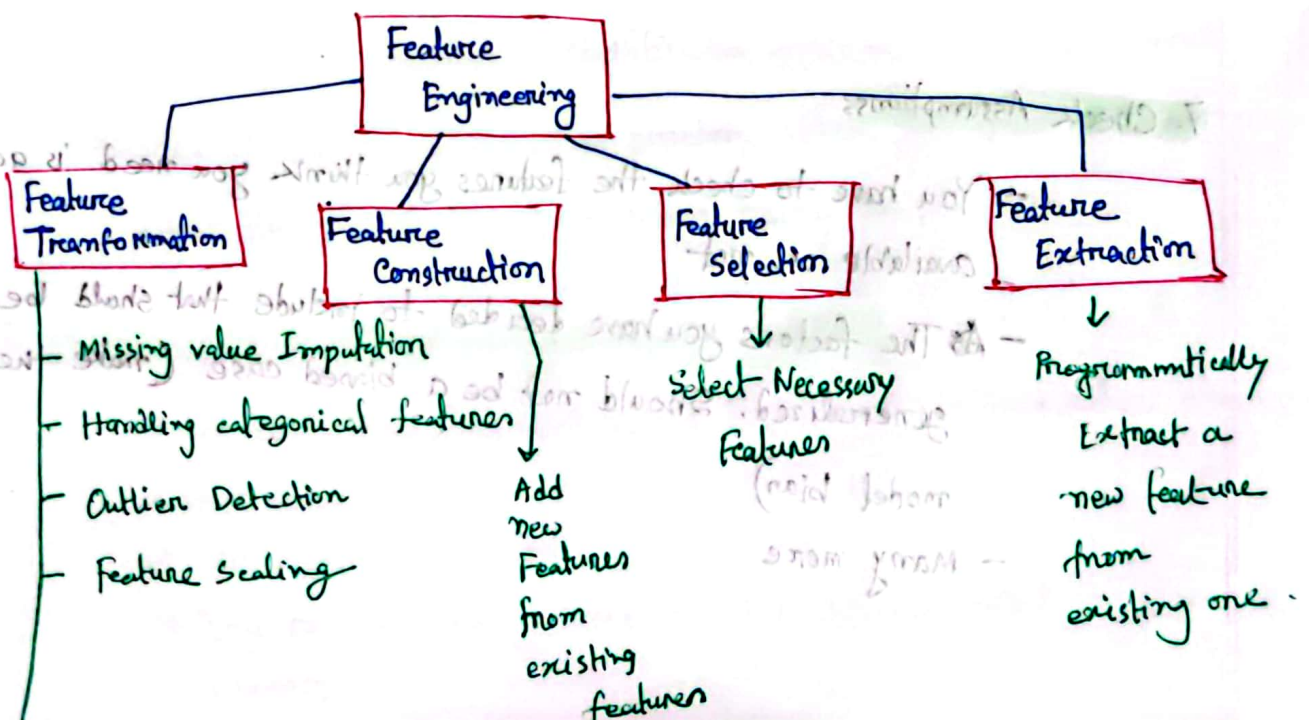 Feature
Engineering
Feature
Tranformation
Missing value Imputation
Handling categorical features
Outlier Detection
Feature Scaling
Feature
Construction
Add
new
Features
from
existing
features
Feature
Selection
Select Necessary
Features
Feature
Extraction
Programmtically
Extract a
new feature
from
existing one.